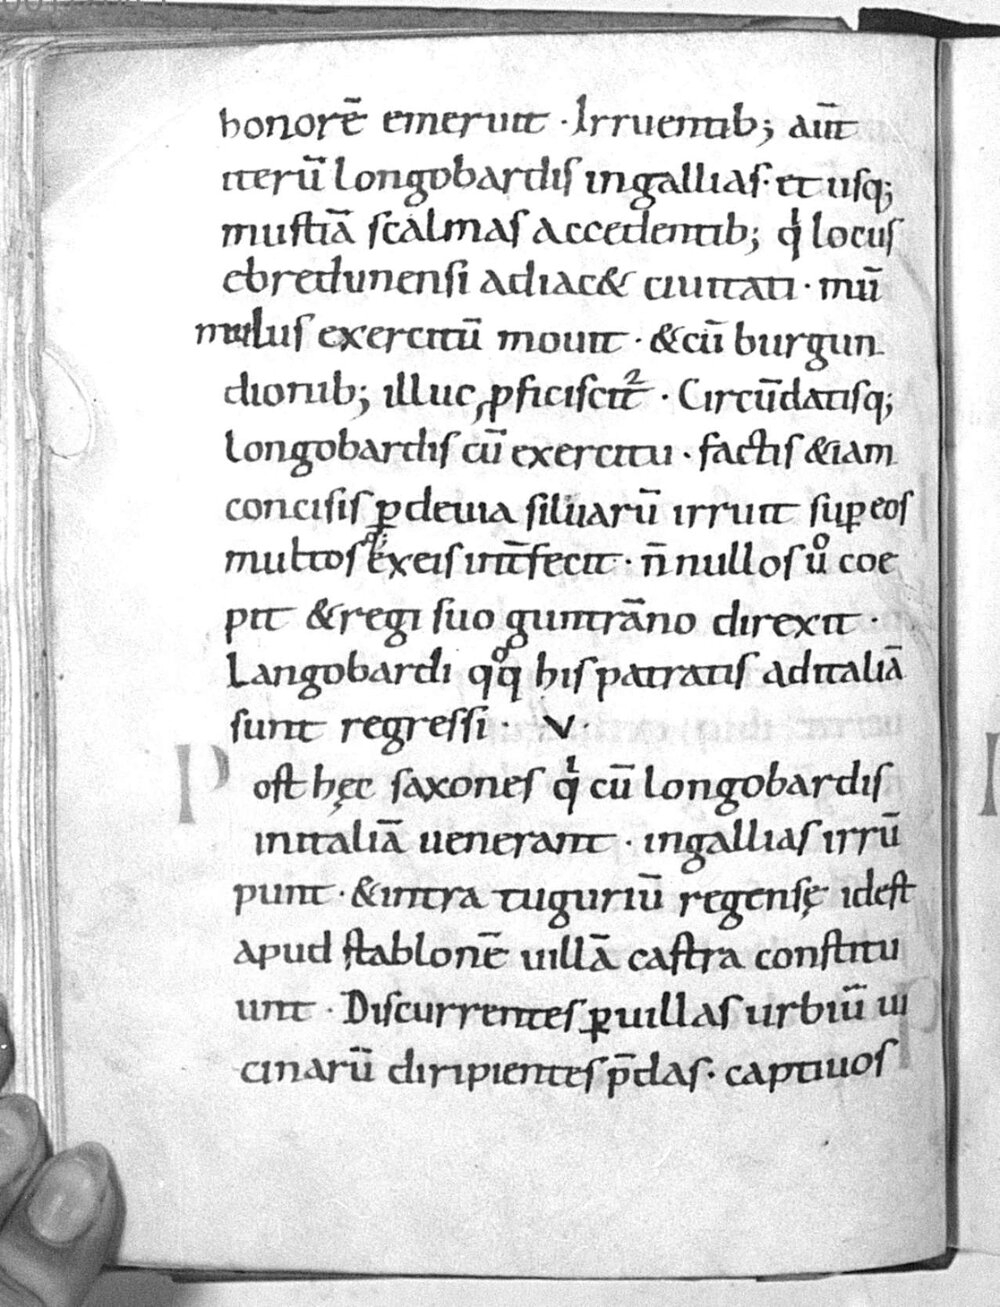 honorē emerunt · Irruentib; aūt
iterū longobardis ingallias · et usq;
mustiā scalmas accedentib; qⁱ locus
ebredunensi adiac& ciuitati · mū
mulus exercitū mouit · &cū burgun
dionib; illuc ꝓficiscit᷑ · Circūdatisq;
longobardis cū exercitu · factis &iam
concisis ꝑdeuia siluarū irruit suꝑeos
multos exeis int̄fecit · n̄nullos uͦ coe
pit &regi suo guntrāno direxit ·
Langobardi qͦq; his patratis aditaliā
sunt regressi · V
Post hęc saxones qⁱ cū longobardis
initaliā uenerant · ingallias irrū
punt · &intra tuguriū regensę idest
apud stablonē uillā castra constitu
unt · Discurrentes ꝑuillas urbiū ui
cinarū diripientes p̄das · captiuos